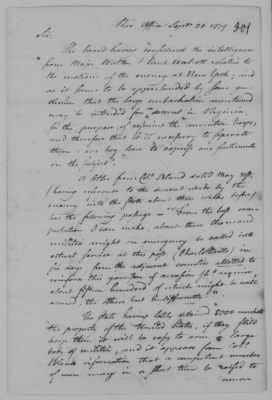 War Office Septr. 28. 1779
301
Sir,
The board having considered the intelligence
from Major relative to
the motions of the enemy at New York; and
as it seems to be apprehended by some gen-
tlemen that the large embarkation mentioned
may be intended for a descent in Virginia,
for the purpose of rescuing the convention troops,
and therefore that it is necessary to separate
them: we beg leave to express our sentiments
on the subject.
A letter from Colo. Bland dated May 18th
(having reference to the descent made by the
enemy into the state about three weeks before)
has the following passage — "From the best com-
putation I can make, about three thousand
militia might in emergency be called into
actual service at this post (Charlottesville) in
six days from the adjacent counties allotted to
reinforce this garrison if occasion shd. require,
about fifteen hundred of which might be well
armed, the others but indifferently."
The state having lately detained 5000 muskets
the property of the United States, if they still
keep them it will be safe to arm a large
body of militia, and it appears from Colo.
Bland's information that a competent number
of men may in a short time be raised to
remove